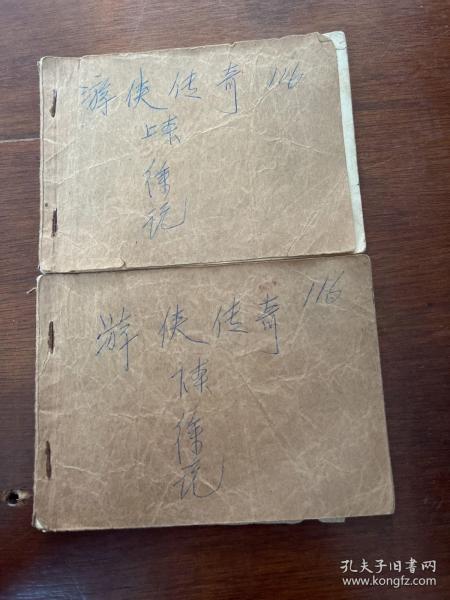 游侠传奇 116
上集
徐玩
游侠传奇 116
下集
徐玩
孔夫子旧书网
www.kongfz.com